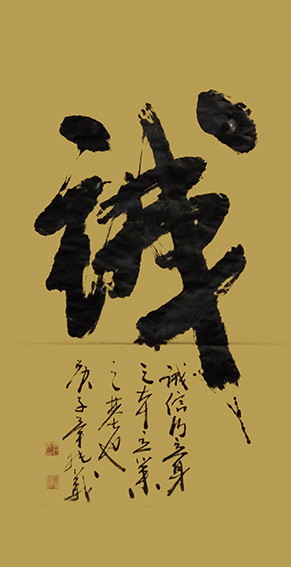 诚
诚信乃立身
之本立业
之基也
庚子年